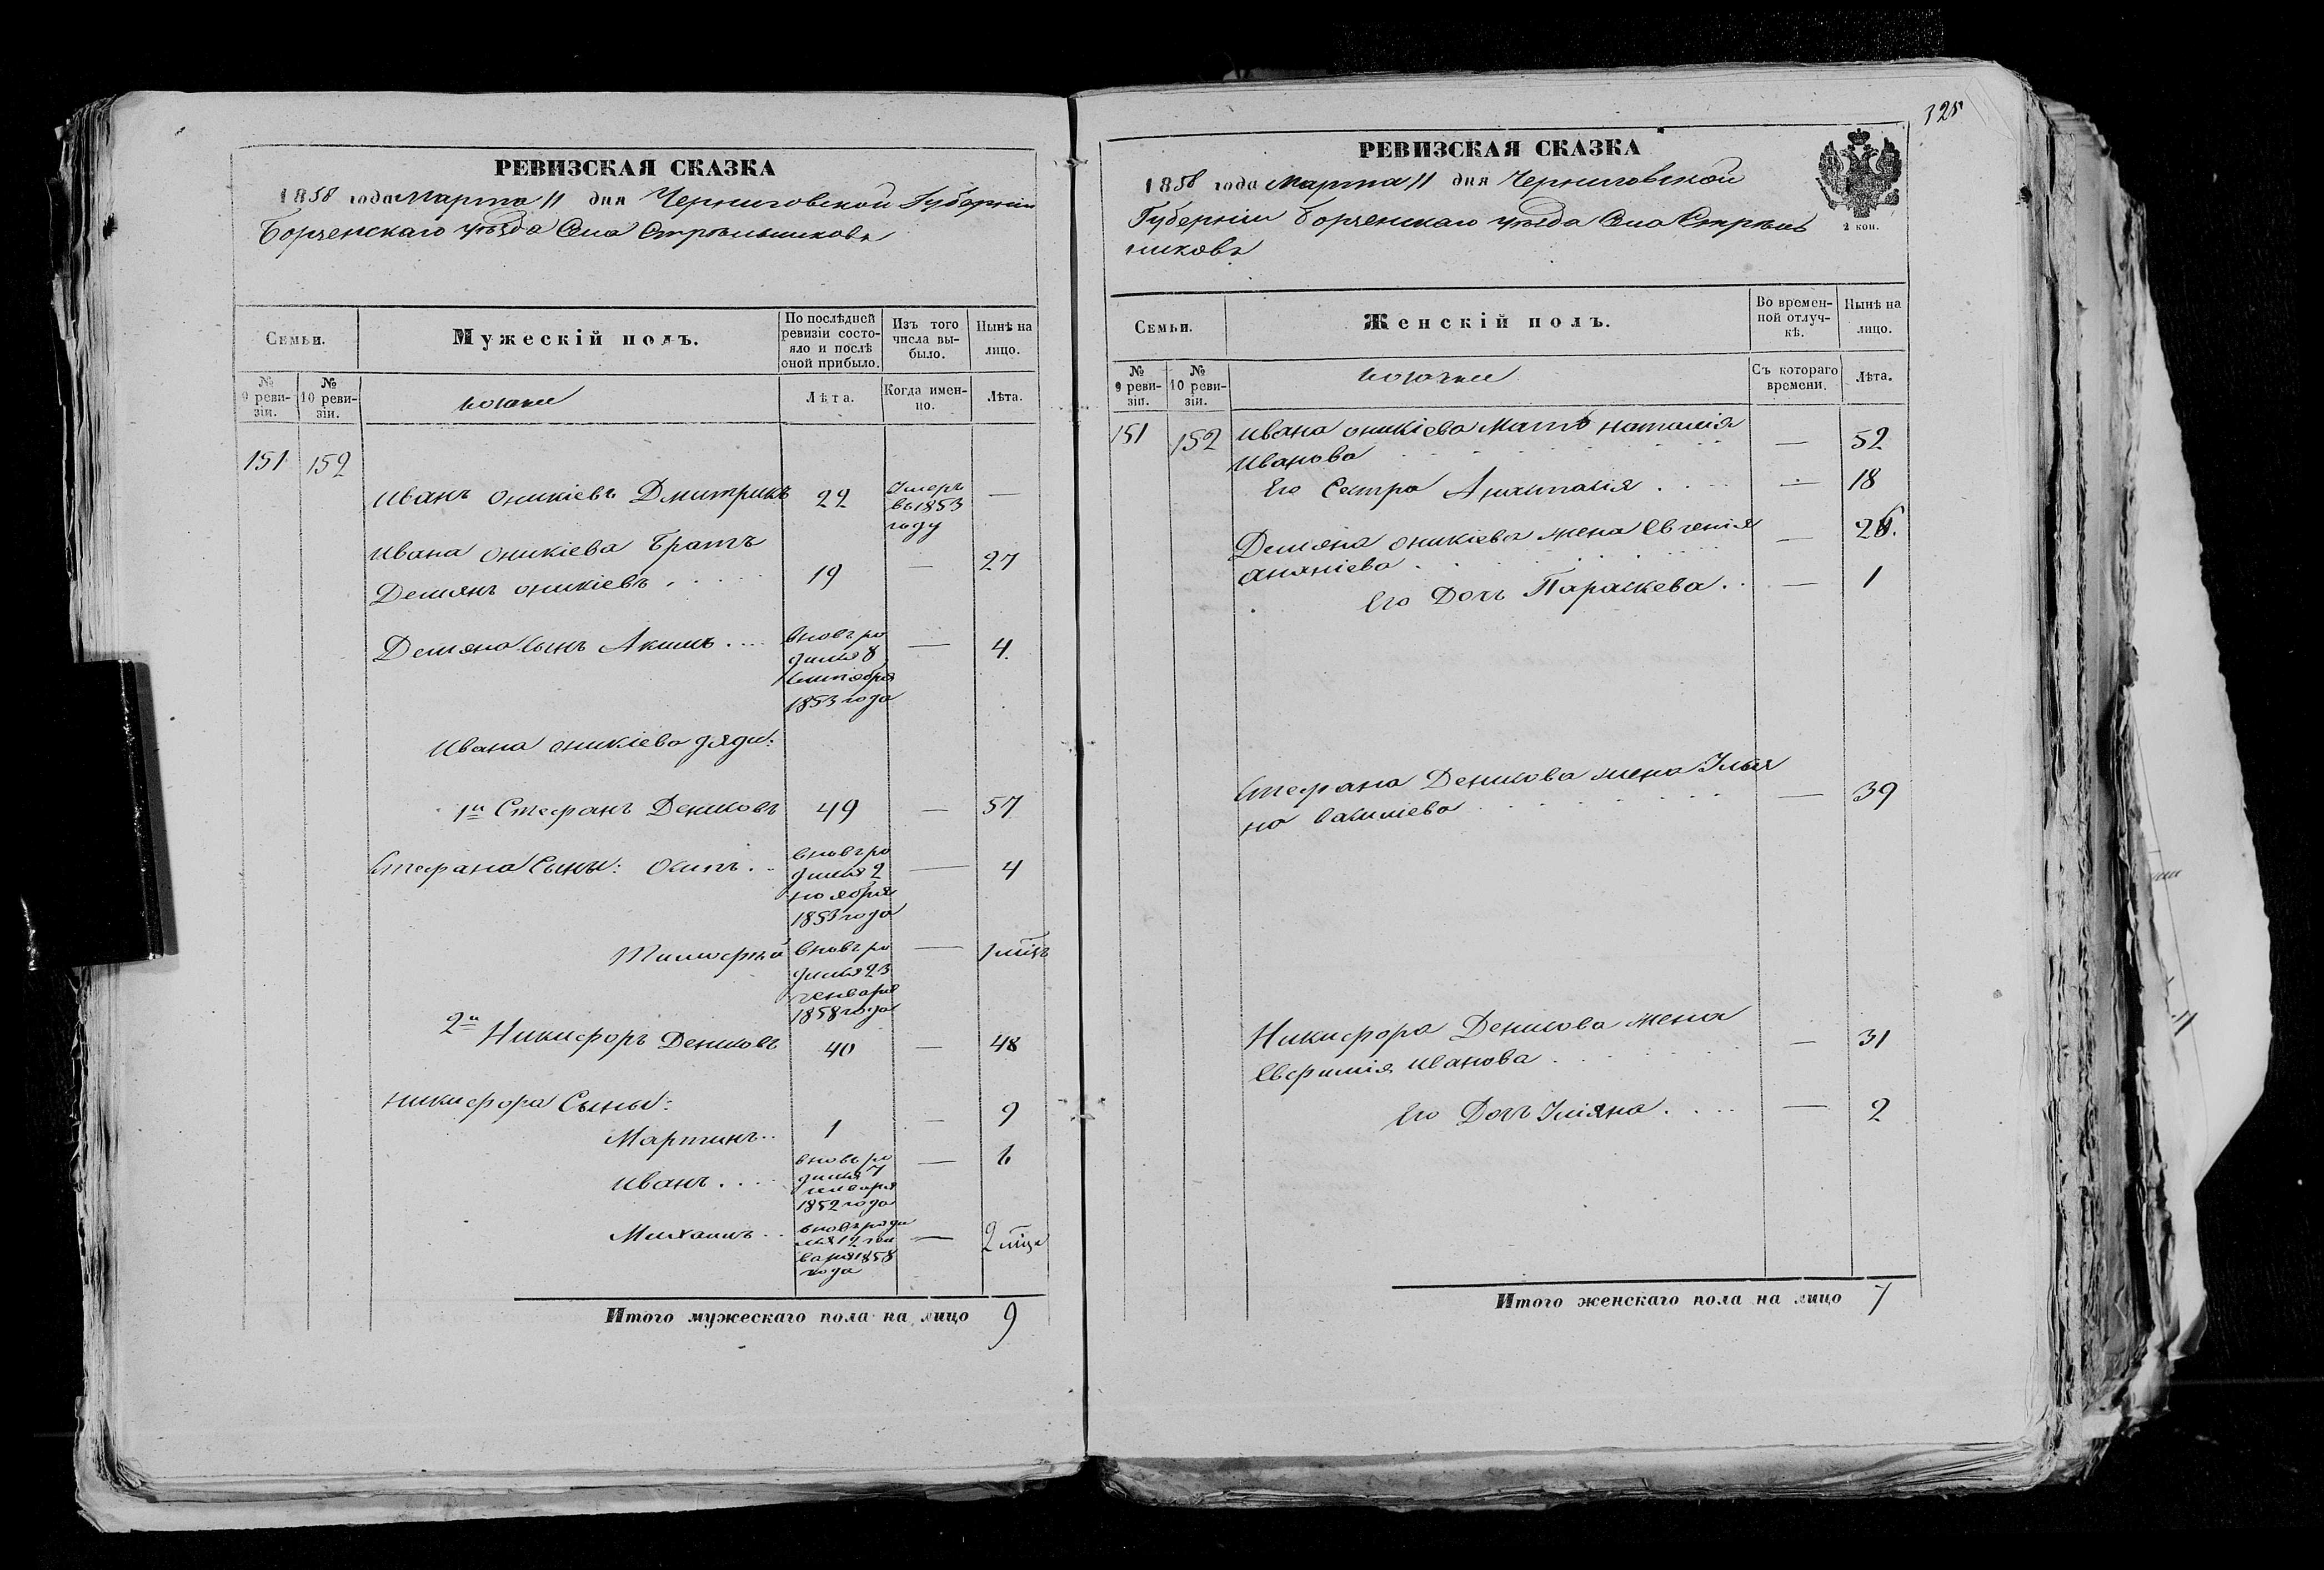 325
РЕВИЗСКАЯ СКАЗКА
1858 года Марта 11 дня Черниговской Губерніи
Борзенскаго уѣзда Села Стрѣльниковъ
Семьи.
Мужескій полъ.
По послѣдней ревизіи состояло и послѣ оной прибыло.
Изъ того числа выбыло.
Нынѣ на лицо.
№ 9 ревизіи.
№ 10 ревизіи.
козаки
Лѣта.
Когда именно.
Лѣта.
151 152
Иванъ Оникіевъ Дмитрикъ 22 Умеръ въ 1853 году —
Ивана Оникіева Братъ
Демянъ Оникіевъ 19 — 27
Демяна сынъ Акимъ вновь родился 8 сентября 1853 года — 4
Ивана Оникіева дяди:
1й Стефанъ Денисовъ 49 — 57
Стефана Сыны: Осипъ вновь родился 2 ноября 1853 года — 4
Тимофей вновь родился 23 генваря 1858 года — 1 мѣ
2й Никифоръ Денисовъ 40 — 48
Никифора Сыны:
Мартинъ 1 — 9
Иванъ вновь родился 7 января 1852 года — 6
Михаилъ вновь родился 12 генваря 1858 года — 2 мѣца
Итого мужескаго пола на лицо 9
РЕВИЗСКАЯ СКАЗКА
1858 года Марта 11 дня Черниговской
Губерніи Борзенскаго уѣзда Села Стрѣль
никовъ
2 коп.
Семьи.
Женскій полъ.
Во временной отлучкѣ.
Нынѣ на лицо.
№ 9 ревизіи.
№ 10 ревизіи.
козачки
Съ котораго времени.
Лѣта.
151 152 Ивана Оникіева Мать Наталія
Иванова — 52
Его Сестра Анастасія — 18
Демяна Оникіева жена Евгенія
Ананіева — 26.
Его Дочь Параскева — 1
Стефана Денисова жена Улья
на — 39
Никифора Денисова жена
Евфимія Иванова — 31
Его Дочь Уліяна — 2
Итого женскаго пола на лицо 7